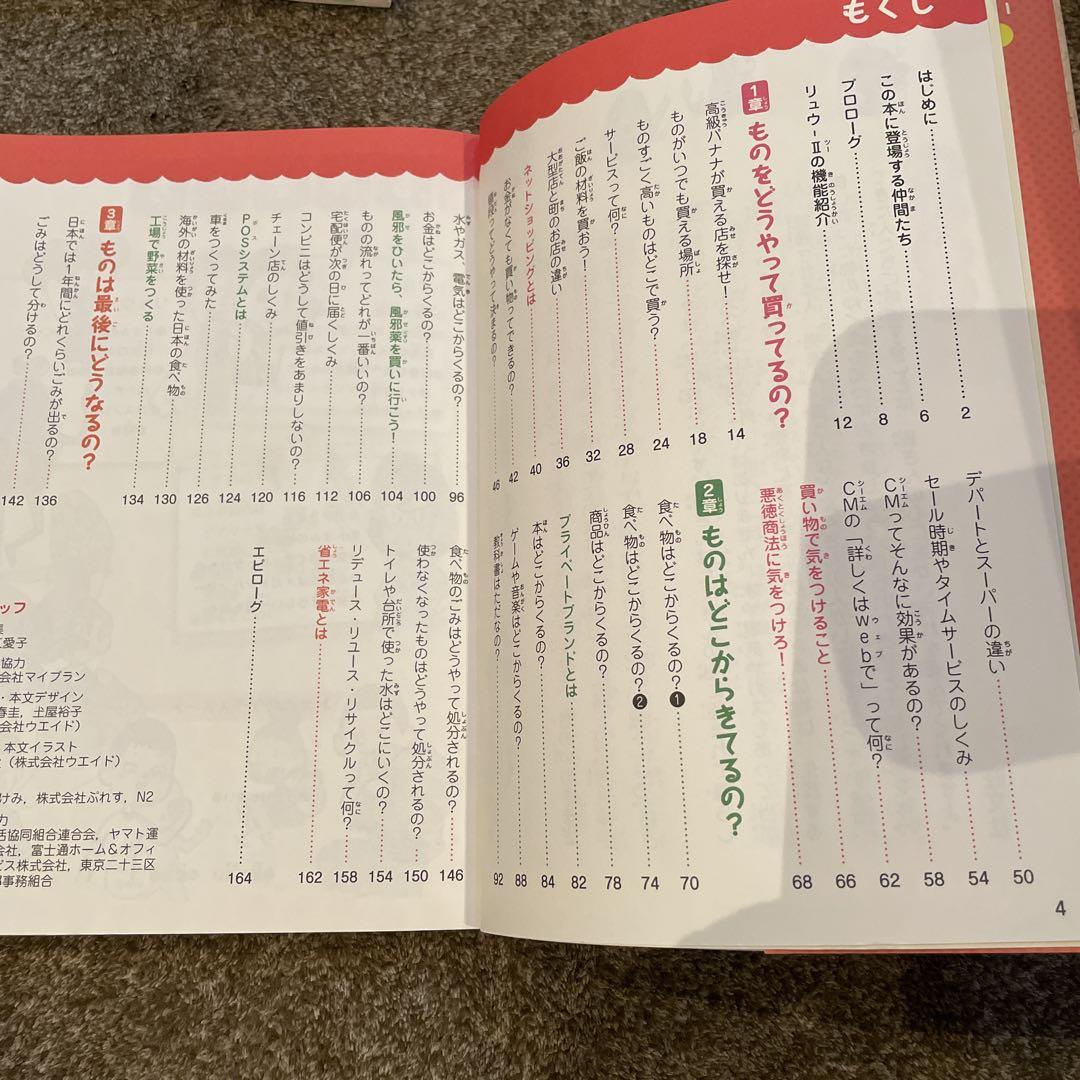 もくじ
はじめに 2
この本に登場する仲間たち 6
プロローグ 8
リュウ-Ⅱの機能紹介 12
1章 ものをどうやって買ってるの？
高級バナナが買える店を探せ！ 14
ものがいつでも買える場所 18
ものすごく高いものはどこで買う？ 24
サービスって何？ 28
ご飯の材料を買おう！ 32
大型店と町のお店の違い 36
ネットショッピングとは 40
お金がなくても買い物ってできるの？ 42
値段ってどうやって決まるの？ 46
デパートとスーパーの違い 50
セール時期やタイムサービスのしくみ 54
CMってそんなに効果があるの？ 58
CMの「詳しくはwebで」って何？ 62
買い物で気をつけること 66
悪徳商法に気をつけろ！ 68
2章 ものはどこからきてるの？
食べ物はどこからくるの？❶ 70
食べ物はどこからくるの？❷ 74
商品はどこからくるの？ 78
プライベートブランドとは 82
本はどこからくるの？ 84
ゲームや音楽はどこからくるの？ 88
教科書はただなの？ 92
4
水やガス、電気はどこからくるの？ 96
お金はどこからくるの？ 100
風邪をひいたら、風邪薬を買いに行こう！ 104
ものの流れってどれが一番いいの？ 106
宅配便が次の日に届くしくみ 112
コンビニはどうして値引きをあまりしないの？ 116
チェーン店のしくみ 120
POSシステムとは 124
車をつくってみた 126
海外の材料を使った日本の食べ物 130
工場で野菜をつくる 134
3章 ものは最後にどうなるの？
日本では1年間にどれくらいごみが出るの？ 136
ごみはどうして分けるの？ 142
食べ物のごみはどうやって処分されるの？ 146
使わなくなったものはどうやって処分されるの？ 150
トイレや台所で使った水はどこにいくの？ 154
リデュース・リユース・リサイクルって何？ 158
省エネ家電とは 162
エピローグ 164
ッフ
愛子
協力
会社マイプラン
・本文デザイン
春圭，土屋裕子
会社ウエイド）
本文イラスト
（株式会社ウエイド）
けみ，株式会社ぷれす，N2
力
活協同組合連合会，ヤマト運
会社，富士通ホーム＆オフィ
ビス株式会社，東京二十三区
事務組合